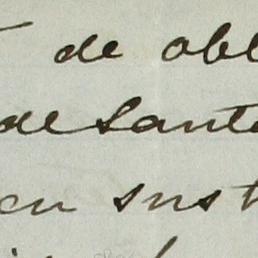 de obl
de Santa
en sust